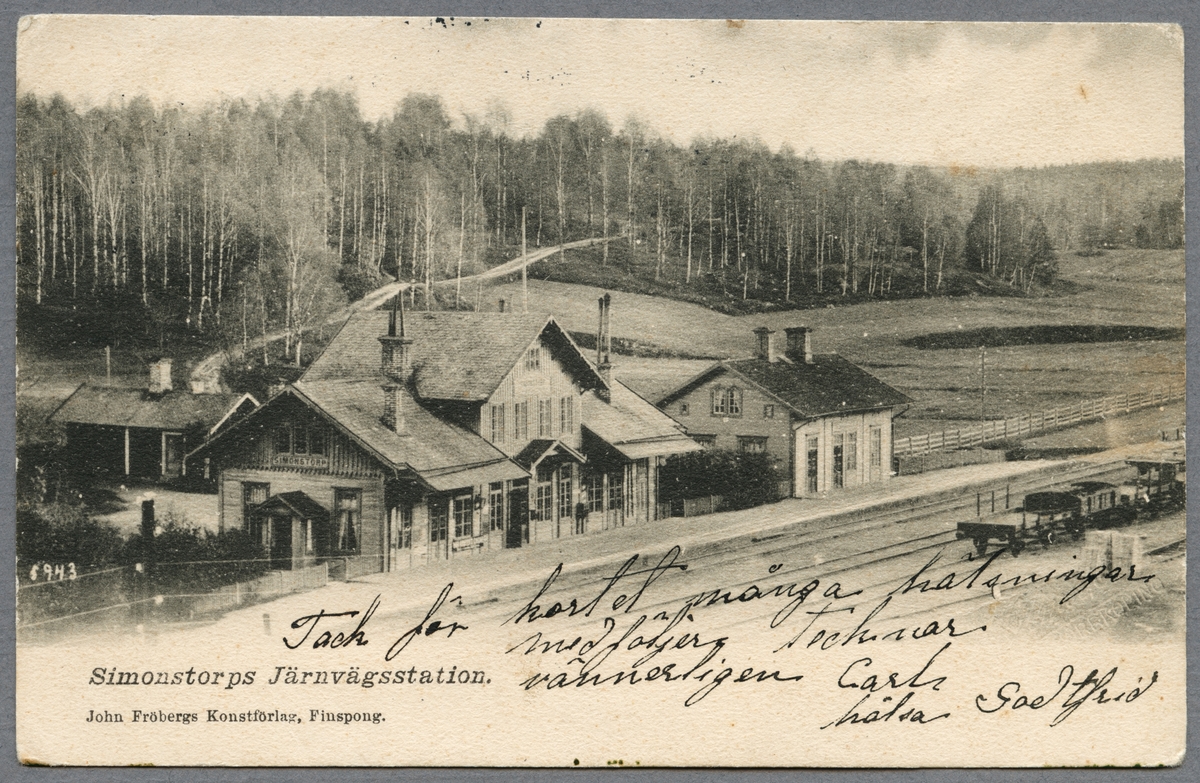 SIMONSTORP
6943
Tack för kortet många hälsningar
medföljer tecknar
vännerligen Carl
hälsa Godtfrid
Simonstorps Järnvägsstation.
John Fröbergs Konstförlag, Finspong.